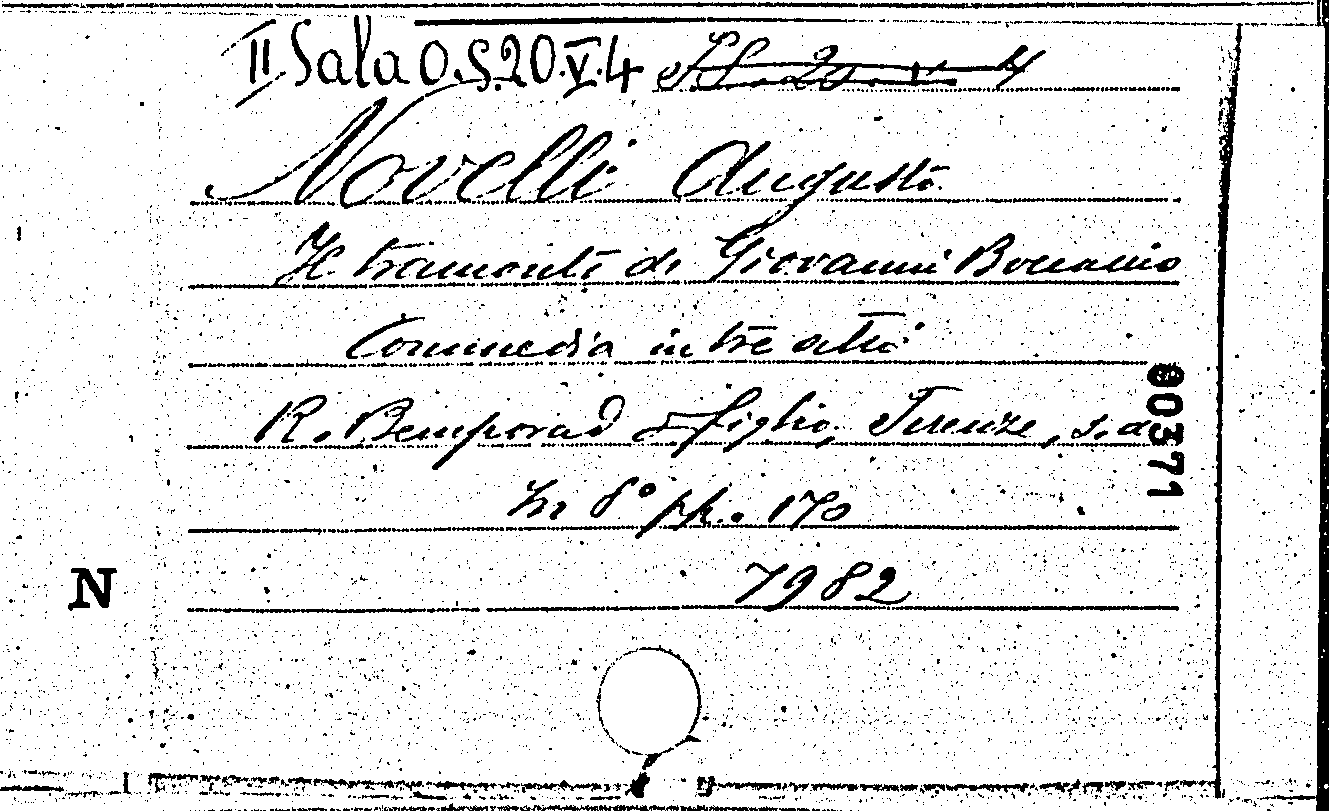 II Sala O.S.20.V.4 S.S. 20. V. 4
Novelli Augusto
Il tramonto di Giovanni Boccaccio
Commedia in tre atti
R. Bemporad & figlio, Firenze, s. a.
In 8° pp. 170
7982
N
00371